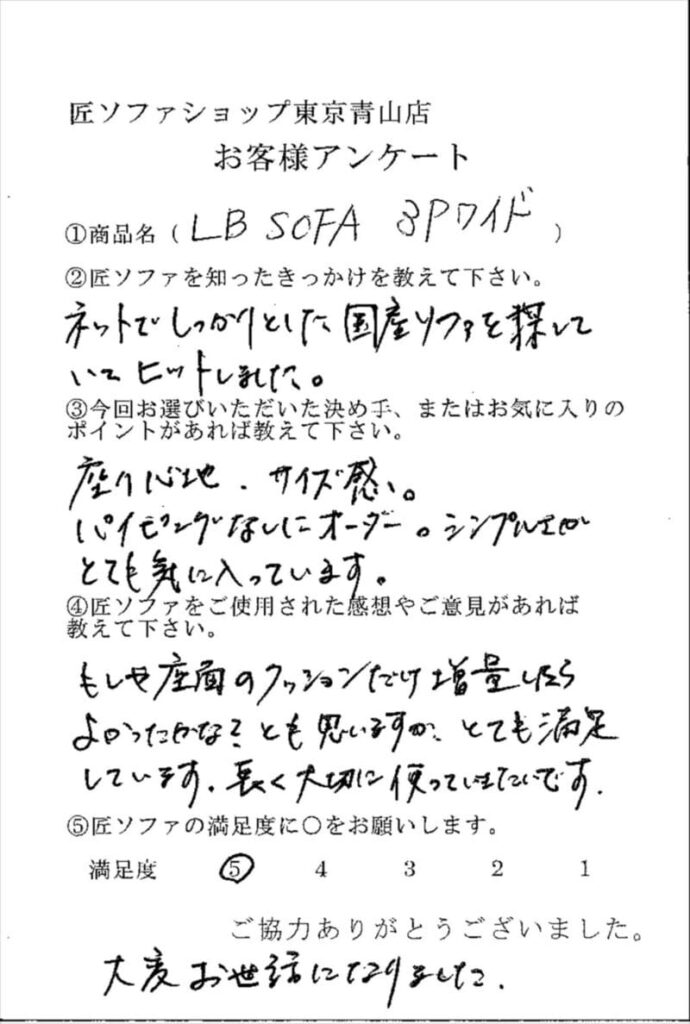 匠ソファショップ東京青山店
お客様アンケート
①商品名(LB SOFA 3Pワイド)
②匠ソファを知ったきっかけを教えて下さい。
ネットでしっかりとした国産ソファを探して
いてヒットしました。
③今回お選びいただいた決め手、またはお気に入りの
ポイントがあれば教えて下さい。
座り心地、サイズ感。
パイピングなしにオーダー。シンプルさが
とても気に入っています。
④匠ソファをご使用された感想やご意見があれば
教えて下さい。
もしや座面のクッションだけ増量したら
よかったかな?とも思いますが、とても満足
しています。長く大切に使っていきたいです。
⑤匠ソファの満足度に○をお願いします。
満足度 ⑤ 4 3 2 1
ご協力ありがとうございました。
大変お世話になりました。